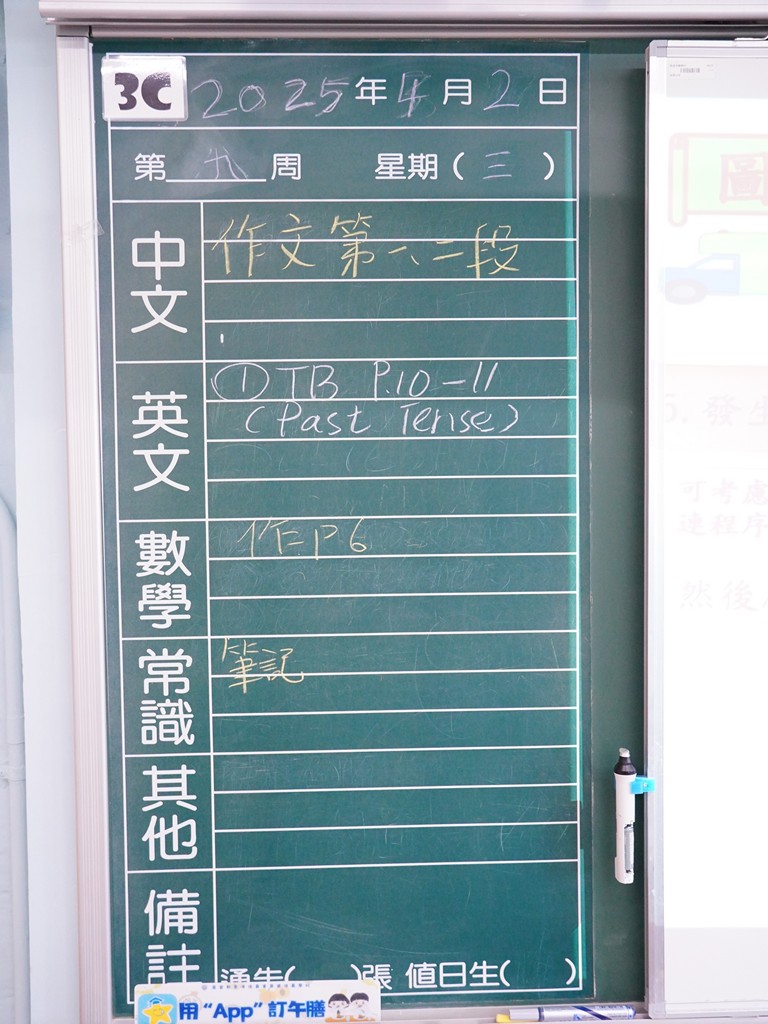 3C 2025年4月2日
第 九 周 星期(三)
中文 作文第一、二段
英文 ①TB P.10-11
(Past Tense)
數學 作P6
常識 筆記
其他
備註
通告( )張 值日生( )
用“App”訂午膳
圖
5. 發生
可考慮
達程序
然後